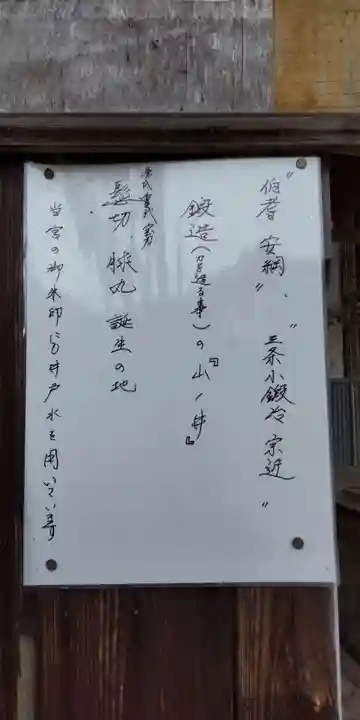 “伯耆 安綱”、“三条小鍛冶宗近”
鍛造(刀を造る事)の『山ノ井』
源氏重代宝刀
髭切、膝丸 誕生の地
当宮の御朱印にも井戸水を用いています